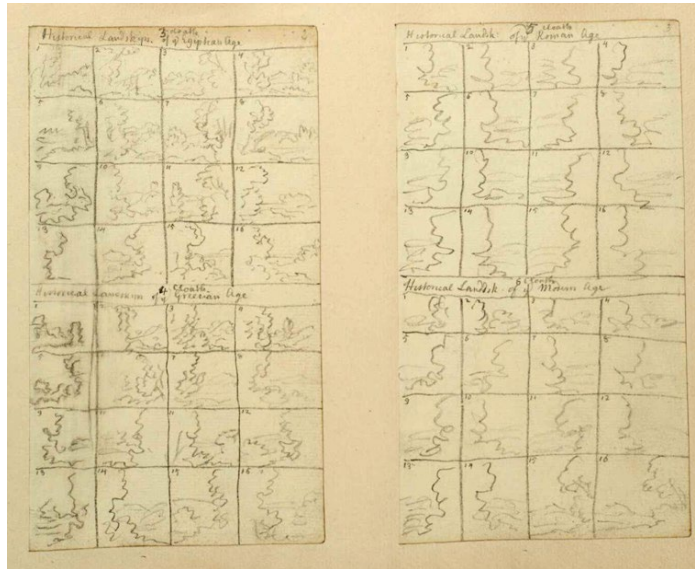 Historical Landskips. 3 cloath of yͤ Egiptean Age
1 2 3 4
5 6 7 8
9 10 11 12
13 14 15 16
Historical Landskips 4 cloath of yͤ Greecian Age
1 2 3 4
5 6 7 8
9 10 11 12
13 14 15 16
Historical Landsk: 5 cloath of yͤ Roman Age 3
1 2 3 4
5 6 7 8
9 10 11 12
13 14 15 16
Historical Landsk 6 cloath of yͤ Age
1 2 3 4
5 6 7 8
9 10 11 12
13 14 15 16